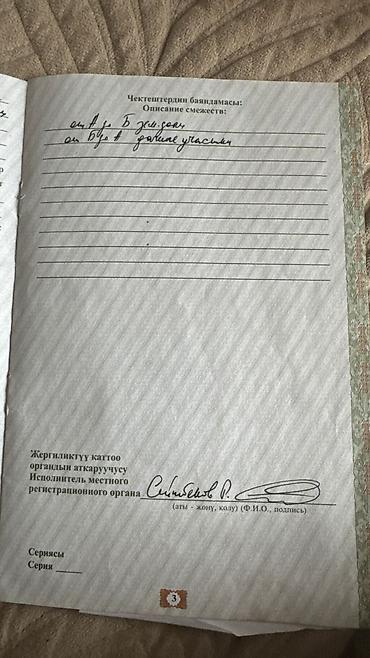 Чектештердин баяндамасы:
Описание смежеств:
от А до Б зем.доли
от Б до А дачные участки
Жергиликтүү каттоо
органдын аткаруучусу
Исполнитель местного
регистрационного органа Сейитбеков Р.
(аты - жөнү, колу) (Ф.И.О., подпись)
Сериясы
Серия
3